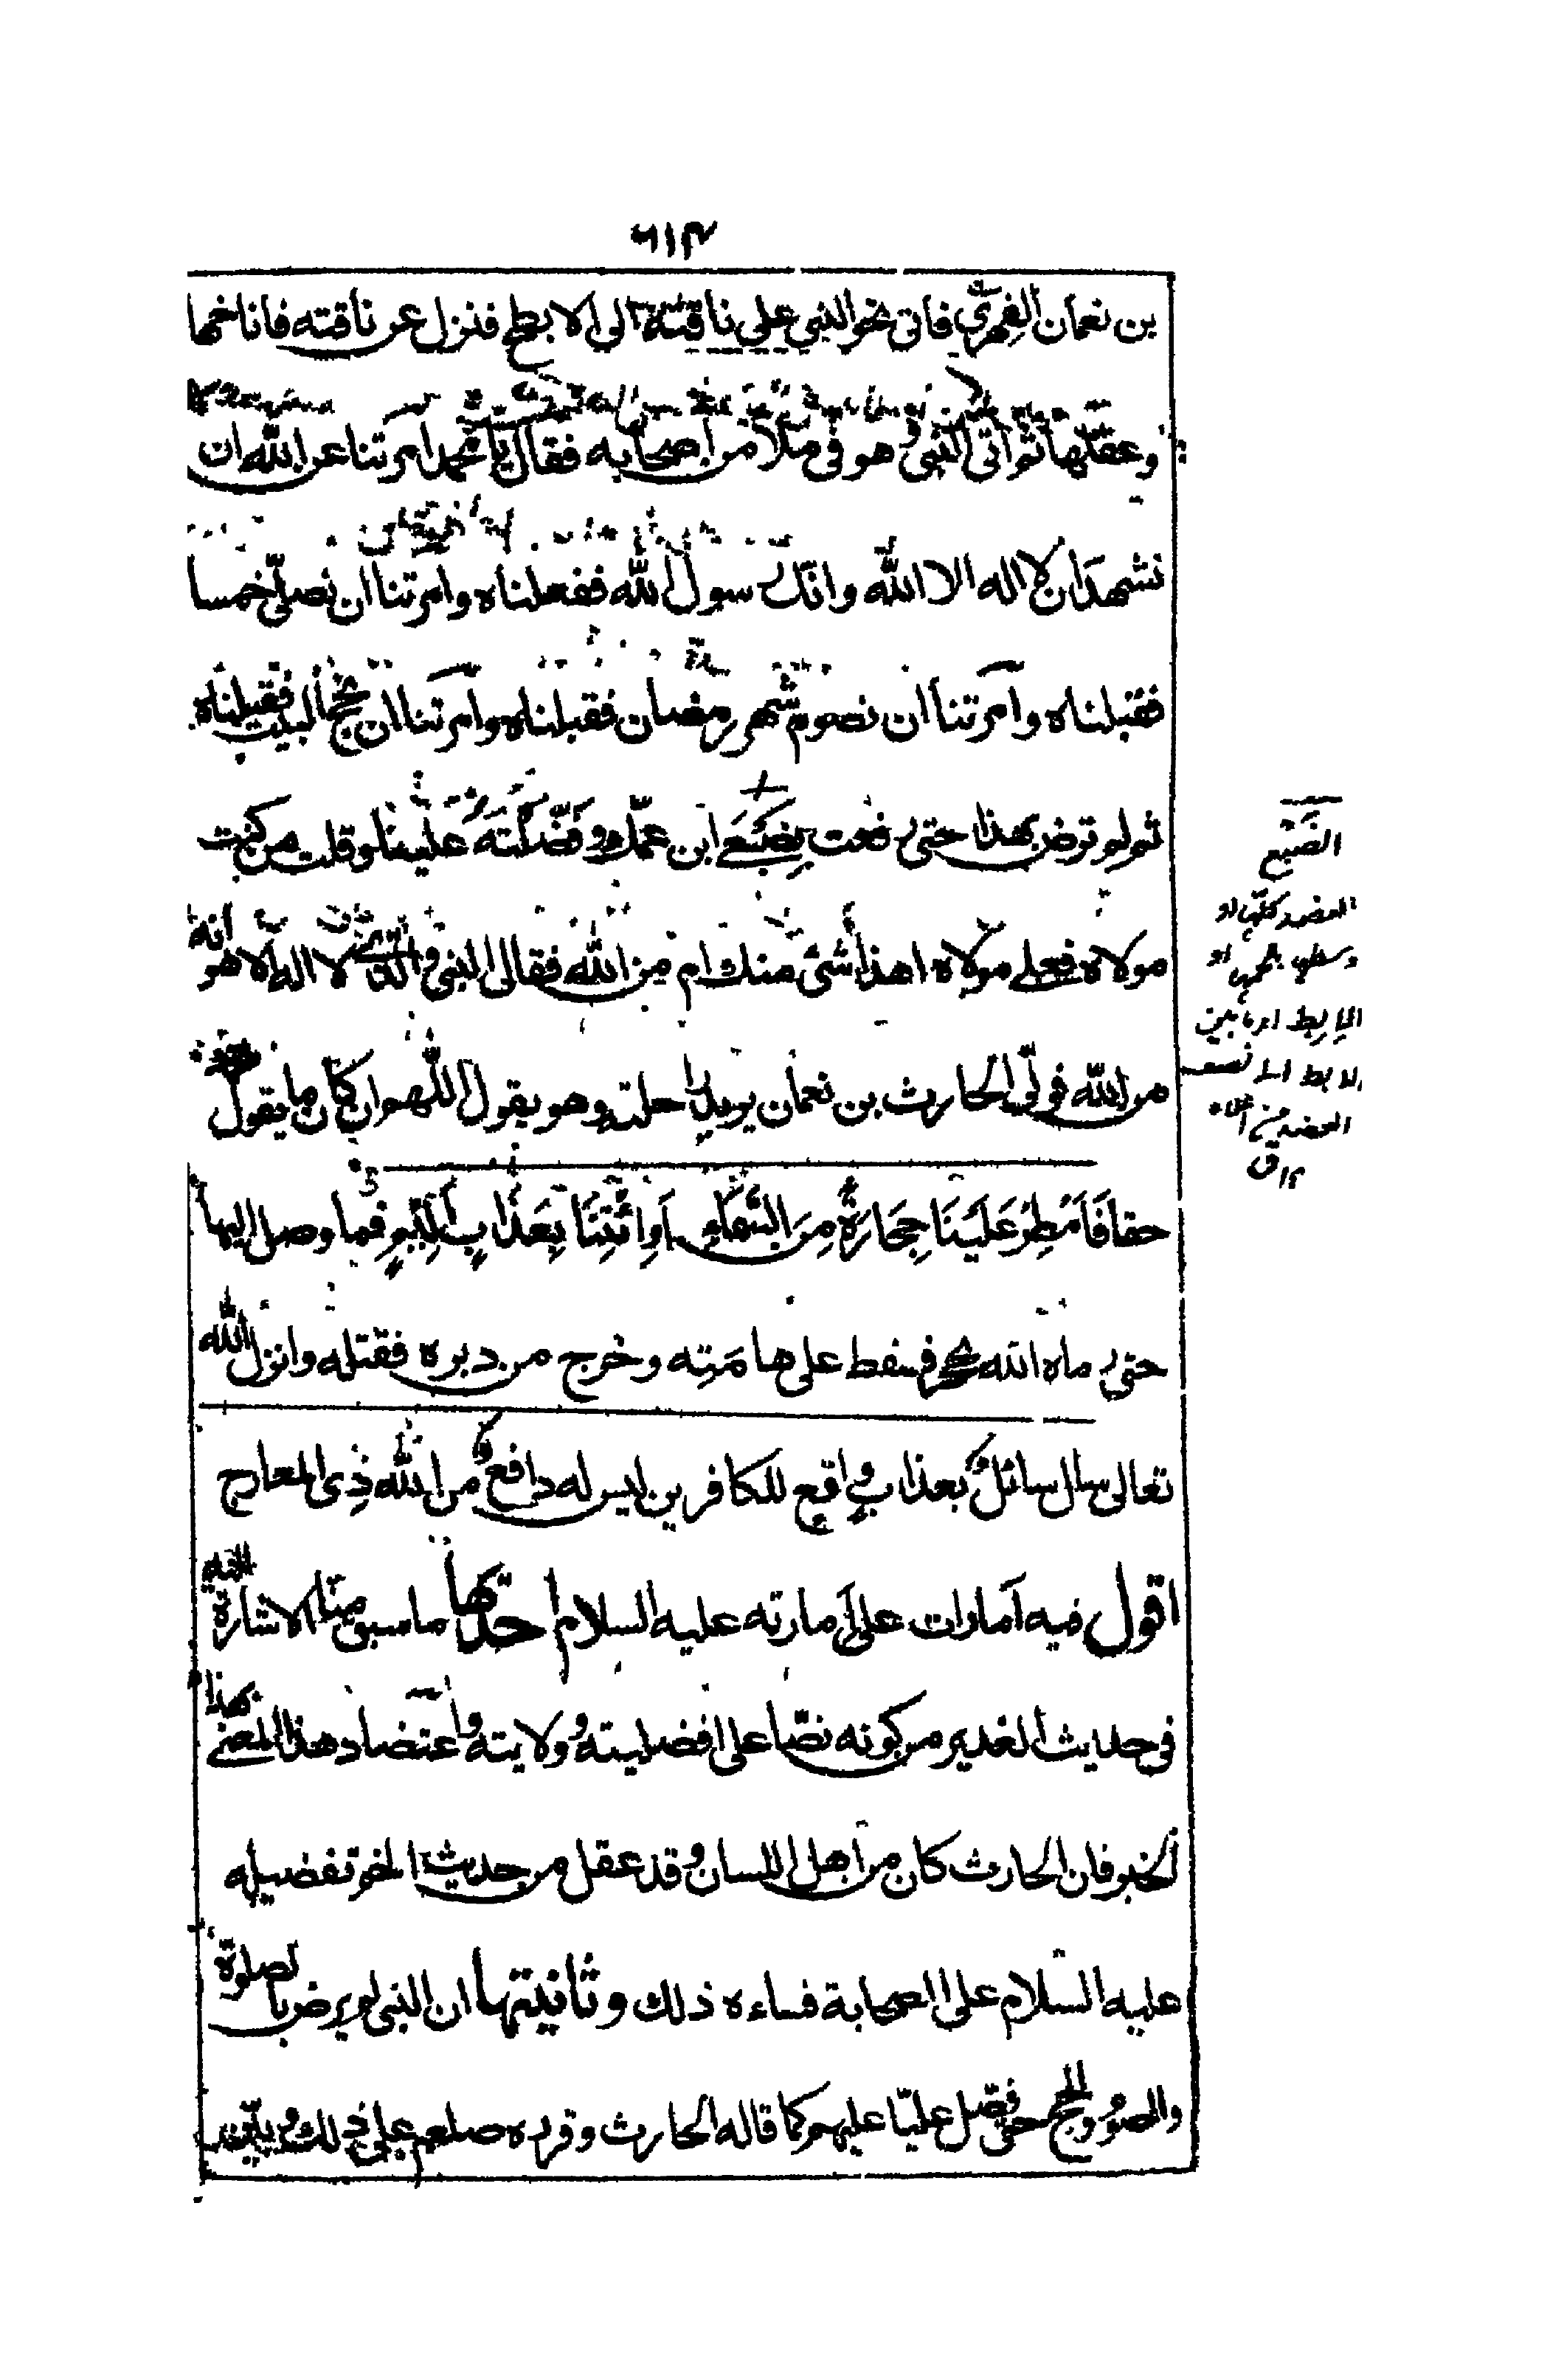 ٦١٣
بن نعمان الفهري فاتى نحو النبي على ناقته الى الابطح فنزل عن ناقته فاناخها
وعقلها ثم اتى النبى وهو فى ملأ من اصحابه فقال يا محمد امرتنا عن الله ان
نشهد ان لا اله الا الله وانك رسول الله ففعلناه وامرتنا ان نصلي خمسا
فقبلناه وامرتنا ان نصوم شهر رمضان فقبلناه وامرتنا ان نحج البيت فقبلناه
ثم لم ترض بهذا حتى رفعت بِضَبْعَي ابن عمك وفَضَّلْتَه علينا وقلت من كنت
مولاه فعلي مولاه اهذا شئ منك ام من الله فقال النبى والذى لا اله الا هو انه
من الله فولّى الحارث بن نعمان يريد راحلته وهو يقول اللهم ان كان ما يقول
حقا فَاَمْطِرْ عَلَيْنَا حِجَارَةً مِنَ السَّمَاءِ اَوِ ائْتِنَا بِعَذَابٍ اَلِيْمٍ فما وصل اليها
حتى رماه الله بحجر فسقط على هامَتِه وخرج من دبره فقتله وانزل الله
تعالى سال سائلٌ بعذابٍ واقعٍ للكافرين ليس له دافعٌ من الله ذِى المعارج
اقول فيه اَمارات على اِمارته عليه السلام احدها ما سبق منا الاشارة اليه
فى حديث الغدير من كونه نصّا على افضليته وولايته واعتضاد هذا المعنى بهذا
الخبر فان الحارث كان من اهل اللسان وقد عقل من حديث الخم تفضيله
عليه السلام على الصحابة فساءه ذلك وثانيتها ان النبى لم يرض بالصلوة
والصوم والحج حتى فضل عليّا عليهم كما قاله الحارث وقرره صلعم على ذلك
الضَبْع
العضد كلها او
وسطها بلحمها او
الابط او ما بين
الابط الى نصف
العضد من اعلاه
١٢ ق